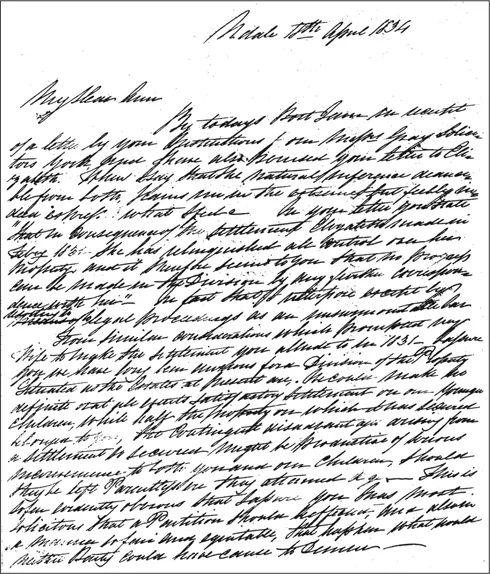 Udale 18th April 1834
My Dear Ann
By todays Post I am in receipt
of a letter by your Instructions from Messrs Gray Solici
tors York and I have also perused your letter to Eli
zabeth. When I say that the natural inference deduca
ble from both, is
In your letter you state
"that in consequence of the Settlement Elizabeth made in
Feby 1831 She has relinquished all control over her
Property and it therefore seems to you that no progress
can be made in the Division by any further correspon
dence with me"
legal Proceedings as an unsurmountable bar
From similar considerations which prompted my
Wife to make the Settlement you allude to in 1831 I assure
you we have long been anxious for a Division of the Property
Situated as the Estates at present are, She could make no
definite and satisfactory Settlement on our younger
Children, while half the Property on which it was secured
belonged to you, the contingent disadvantages arising from
a Settlement so secured might be productive of serious
inconvenience to both you and our Children, should
they be left Parentless before they attained age. This is
so evidently obvious that I assure you I was most
solicitous that a Partition should be effected, and in
a manner so fair and equitable, that happen what would
neither Party could have cause to